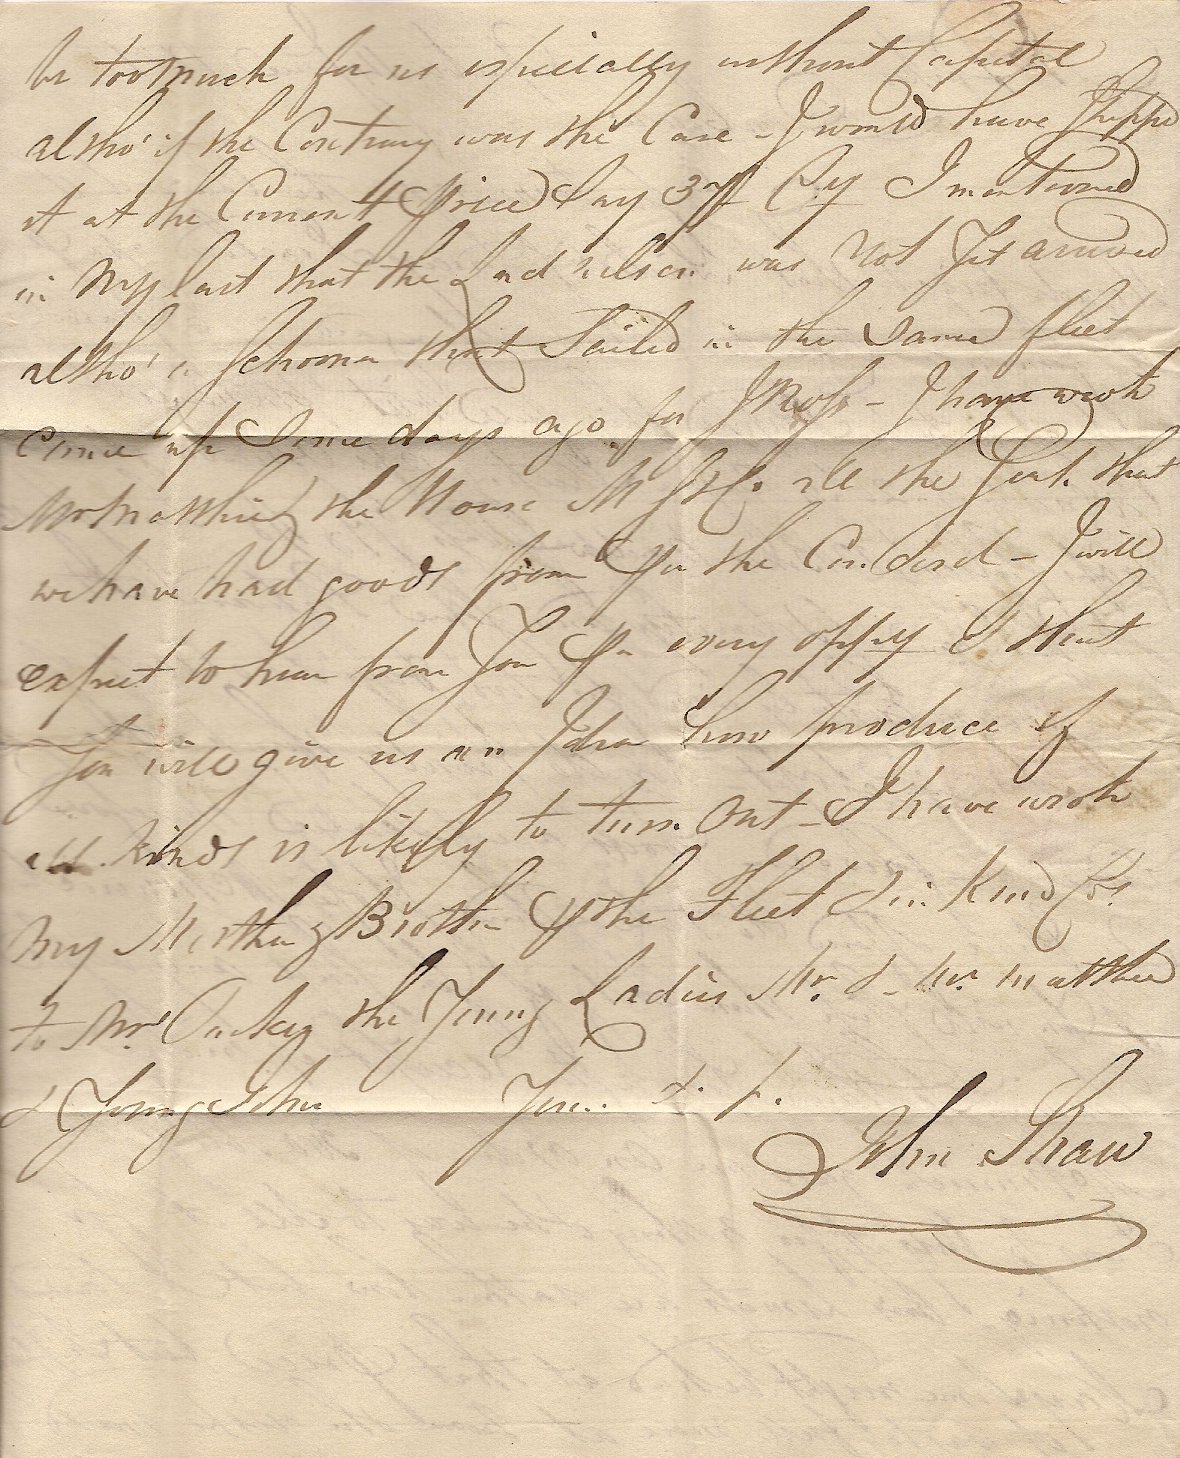 be too much for us especially without Capital
altho' if the Contrary was the Case - I would have Shipp'd
it at the Current Price Say 37/ Cy I mentioned
in My last that the Lord Nelson was Not Yet arrived
altho' a Schooner that Sailed in the Same fleet
Came up Some days ago for J Ross - I have wrote
Mr Matthie the House all the that
we have had goods from Per the Concord - I will
expect to hear from You Per every oppty & that
You will give us an Idea how produce of
all kinds is likely to turn Out - I have wrote
My Mother & Brother P the Fleet & in Kind
to Mrs the Young Ladies Mr. & Mr. Matthie
& Young John Your &. &.
John Shaw